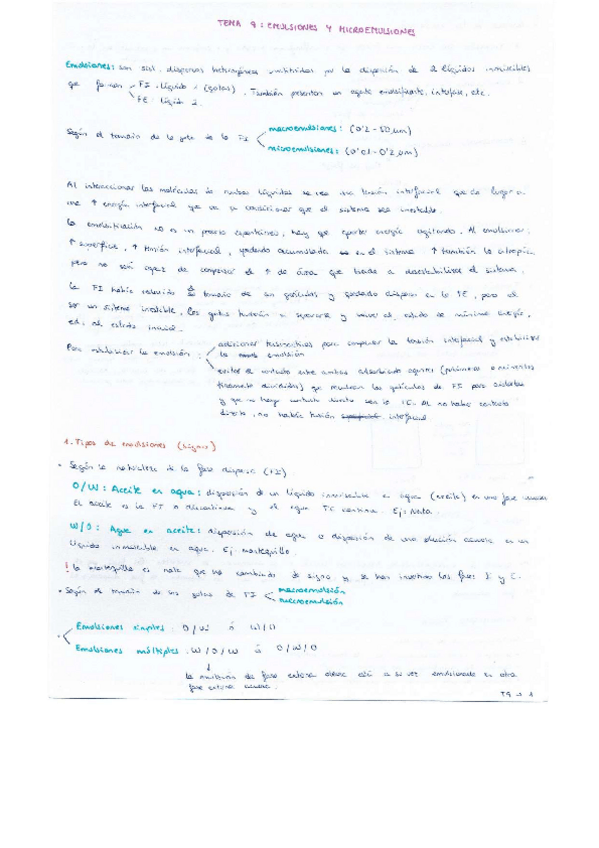 TEMA 9: EMULSIONES Y MICROEMULSIONES
Emulsiones: son sist. dispersos heterogéneos constituidos por la dispersión de 2 líquidos inmiscibles
que forman FI: líquido 1 (gotas). También presentan un agente emulsificante, interfase, etc.
FE: líquido 2.
Según el tamaño de la gota de la FI
macroemulsiones: (0'2-50 µm)
microemulsiones: (0'01-0'2 µm)
Al interaccionar las moléculas de ambos líquidos se crea una tensión interfacial que da lugar a
una ↑ energía interfacial que va a condicionar que el sistema sea inestable.
La emulsificación no es un proceso espontáneo, hay que aportar energía agitando. Al emulsionar:
↑ superficie, ↑ tensión interfacial, quedando acumulada en el sistema ↑ también la entropía
pero no son capaz de compensar el ↑ de área que tiende a desestabilizar el sistema.
La FI había reducido el tamaño de sus partículas y quedado dispersa en la FE, pero al
ser un sistema inestable, las gotas tienden a separarse y volver al estado de mínima energía,
es, al estado inicial.
Para estabilizar la emulsión:
adicionar tensioactivos para compensar la tensión interfacial y estabilizar
la emulsión
evitar el contacto entre ambas adsorbiendo agentes (polímeros o
finamente divididos) que recubran las partículas de FI para aislarlas
y que no haya contacto directo con la FE. Al no haber contacto
directo, no habría tensión interfacial.
1. Tipos de emulsiones (signos)
• Según la naturaleza de la fase dispersa (FI)
O/W: Aceite en agua: dispersión de un líquido inmiscible en agua (aceite) en una fase acuosa
El aceite es la FI o discontinua y el agua FE continua. Ej: Nata.
W/O: Agua en aceite: dispersión de agua o dispersión de una solución acuosa en un
líquido inmiscible en agua. Ej: mantequilla.
! La mantequilla es nata que ha cambiado de signo y se han invertido las fases I y E.
• Según el tamaño de las gotas de FI
macroemulsión
microemulsión
• Emulsiones simples: O/W ó W/O
Emulsiones múltiples: W/O/W ó O/W/O
la emulsión de fase externa oleosa está a su vez emulsionada en otra
fase externa acuosa.
T9 - 1